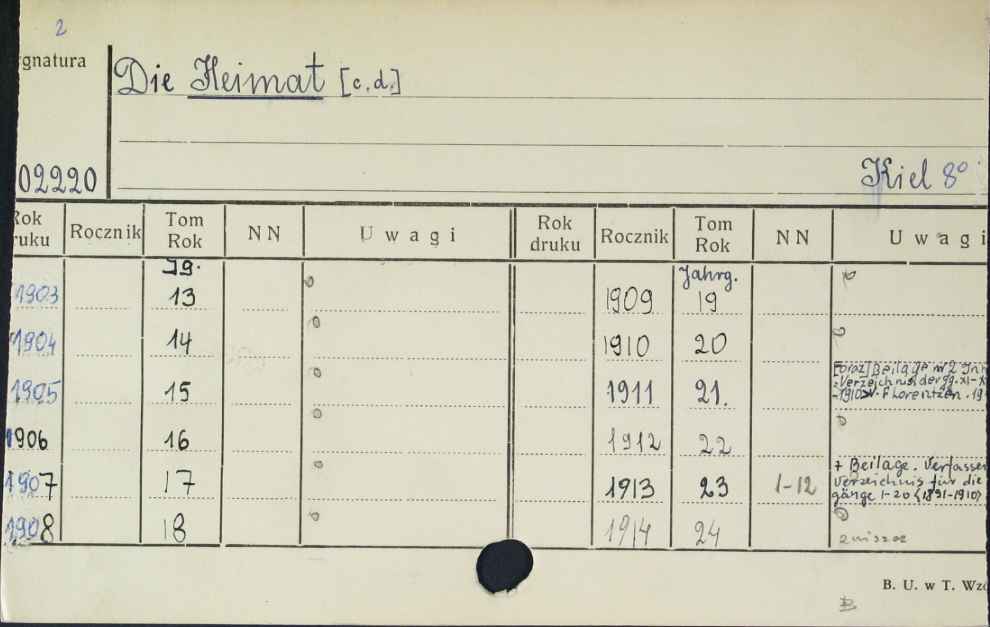 2
gnatura
Die Heimat [c.d.]
02220
Kiel 8°
Rok druku Rocznik Tom Rok NN Uwagi Rok druku Rocznik Tom Rok NN Uwagi
Jg. Jahrg.
1903 13 1909 19
1904 14 1910 20
1905 15 1911 21. [oraz] Beilage nr 2
Verzeichnis der Jg. XI-X
-1910 F. Lorentzen. 19
1906 16 1912 22
1907 17 1913 23 1-12 + Beilage. Verfasser
Verzeichnis für die
gänge 1-20 (1891-1910)
1908 18 1914 24
B. U. w T. Wzó